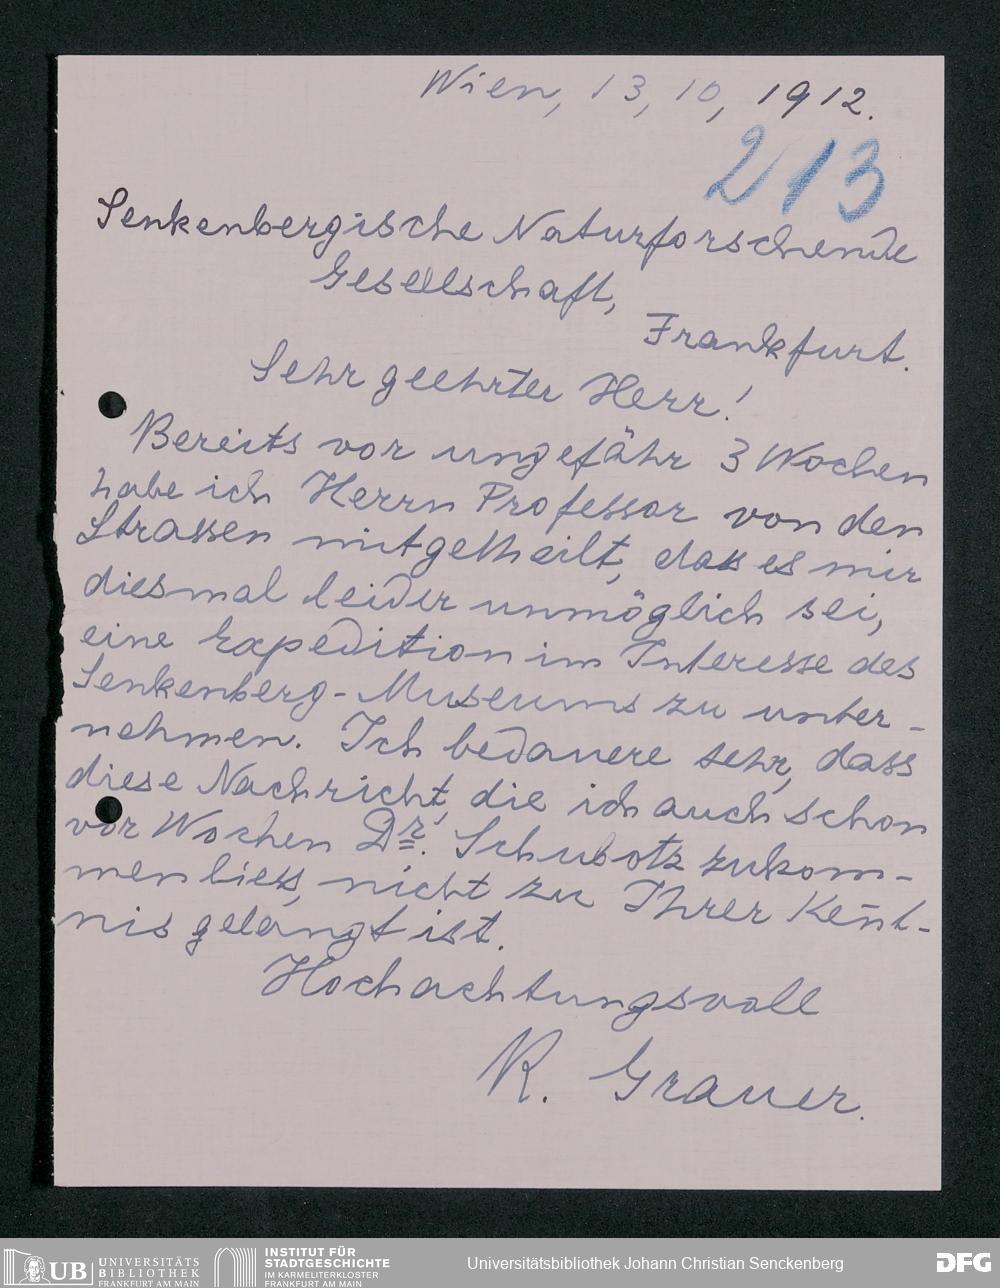 Wien, 13, 10, 1912.
213
Senkenbergische Naturforschende
Gesellschaft,
Frankfurt.
Sehr geehrter Herr!
Bereits vor ungefähr 3 Wochen
habe ich Herrn Professor von den
Strassen mitgetheilt, dass es mir
diesmal leider unmöglich sei,
eine Expedition im Interesse des
Senkenberg-Museums zu unter-
nehmen. Ich bedauere sehr, dass
diese Nachricht, die ich auch schon
vor Wochen Dr. Schubotz zukom-
men liess, nicht zu Ihrer Keñt-
nis gelangt ist.
Hochachtungsvoll
R. Grauer.
UB UNIVERSITÄTS
BIBLIOTHEK
FRANKFURT AM MAIN
INSTITUT FÜR
STADTGESCHICHTE
IM KARMELITERKLOSTER
FRANKFURT AM MAIN
Universitätsbibliothek Johann Christian Senckenberg
DFG